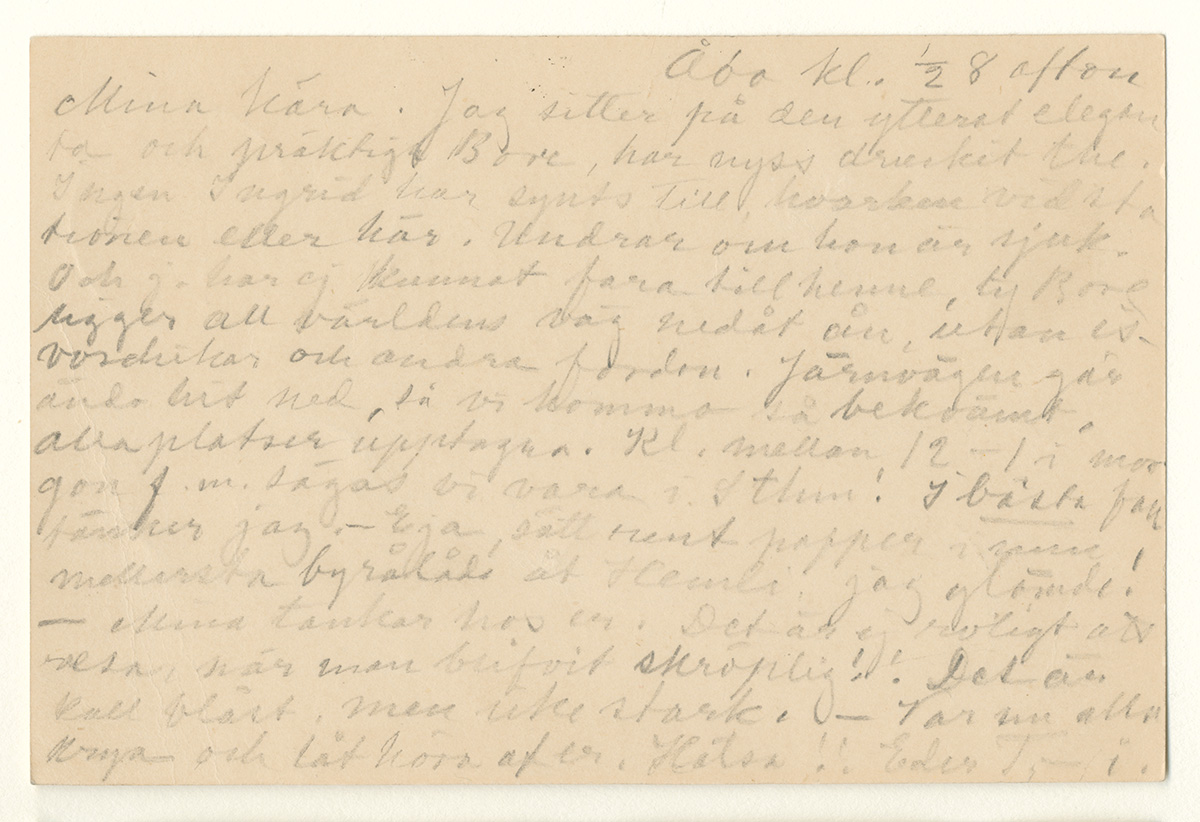 Åbo kl. ½ 8 afton
Mina kära. Jag sitter på den ytterst elegan
ta och präktiga Bore, har nyss druckit the.
Ingen Ingrid har synts till, hvarken vid sta
tionen eller här. Undrar om hon är sjuk.
Och j. har ej kunnat fara till henne, ty Bore
ligger all världens väg nedåt ån, utan is-
vorschikar och andra fordon. Järnvägen går
ända hit ned, så vi kommo så bekvämt.
Alla platser upptagna. Kl. mellan 12–1 i mor
gon f.m. sägas vi vara i Sthlm! I bästa fall
tänker jag. – Eya, sätt rent papper i min
mellersta byrålåda åt Hemli, jag glömde!
— Mina tankar hos er. Det är ej roligt att
resa, när man blifvit skröplig!! Det är
kall blåst, men icke stark. — Var nu alla
krya och låt höra af er. Hälsa!! Eder T. – i.